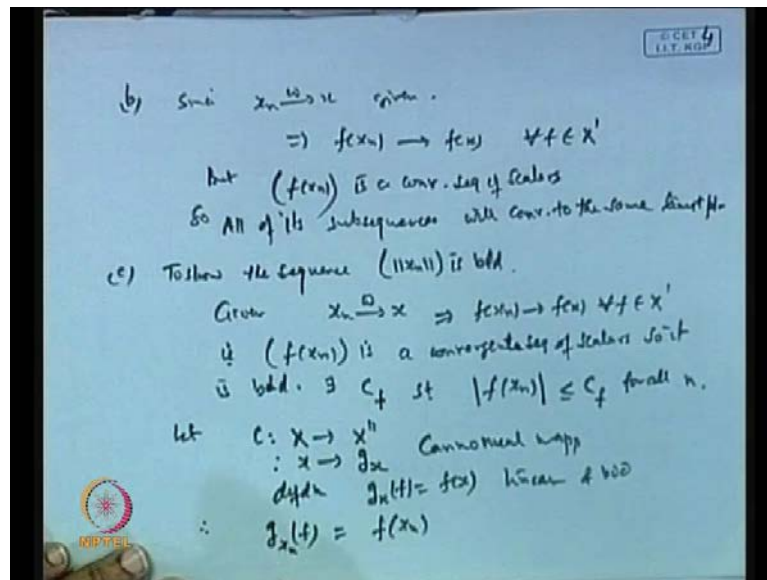 © CET
I.I.T. KGP 4
b) Since xₙ →ʷ x given.
⇒ f(xₙ) → f(x) ∀ f ∈ X'
But (f(xₙ)) is a conv. seq of scalars
So All of its subsequences will conv. to the same limit pt.
(c) To show the sequence (||xₙ||) is bdd.
Given xₙ →ʷ x ⇒ f(xₙ) → f(x) ∀ f ∈ X'
ie (f(xₙ)) is a convergent seq of scalars so it
is bdd. ∃ C_f st |f(xₙ)| ≤ C_f for all n.
Let C: X → X''
: x → gₓ Cannonical mapp
gₓ(f) = f(x) linear & bdd
∴ gₓₙ(f) = f(xₙ)
NPTEL